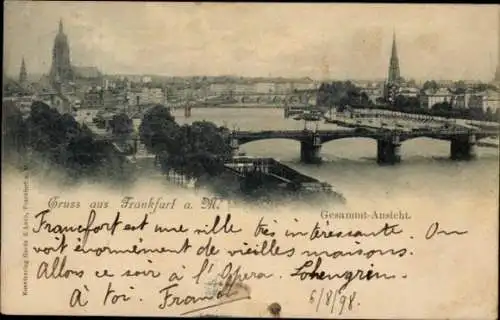 Gruss aus Frankfurt a. M.
Gesammt-Ansicht.
Francfort est une ville très intéressante. On
voit énormément de vieilles maisons.
Allons ce soir à l'Opéra. Lohengrin
à toi. Franz
6/8/98.
Kunstverlag